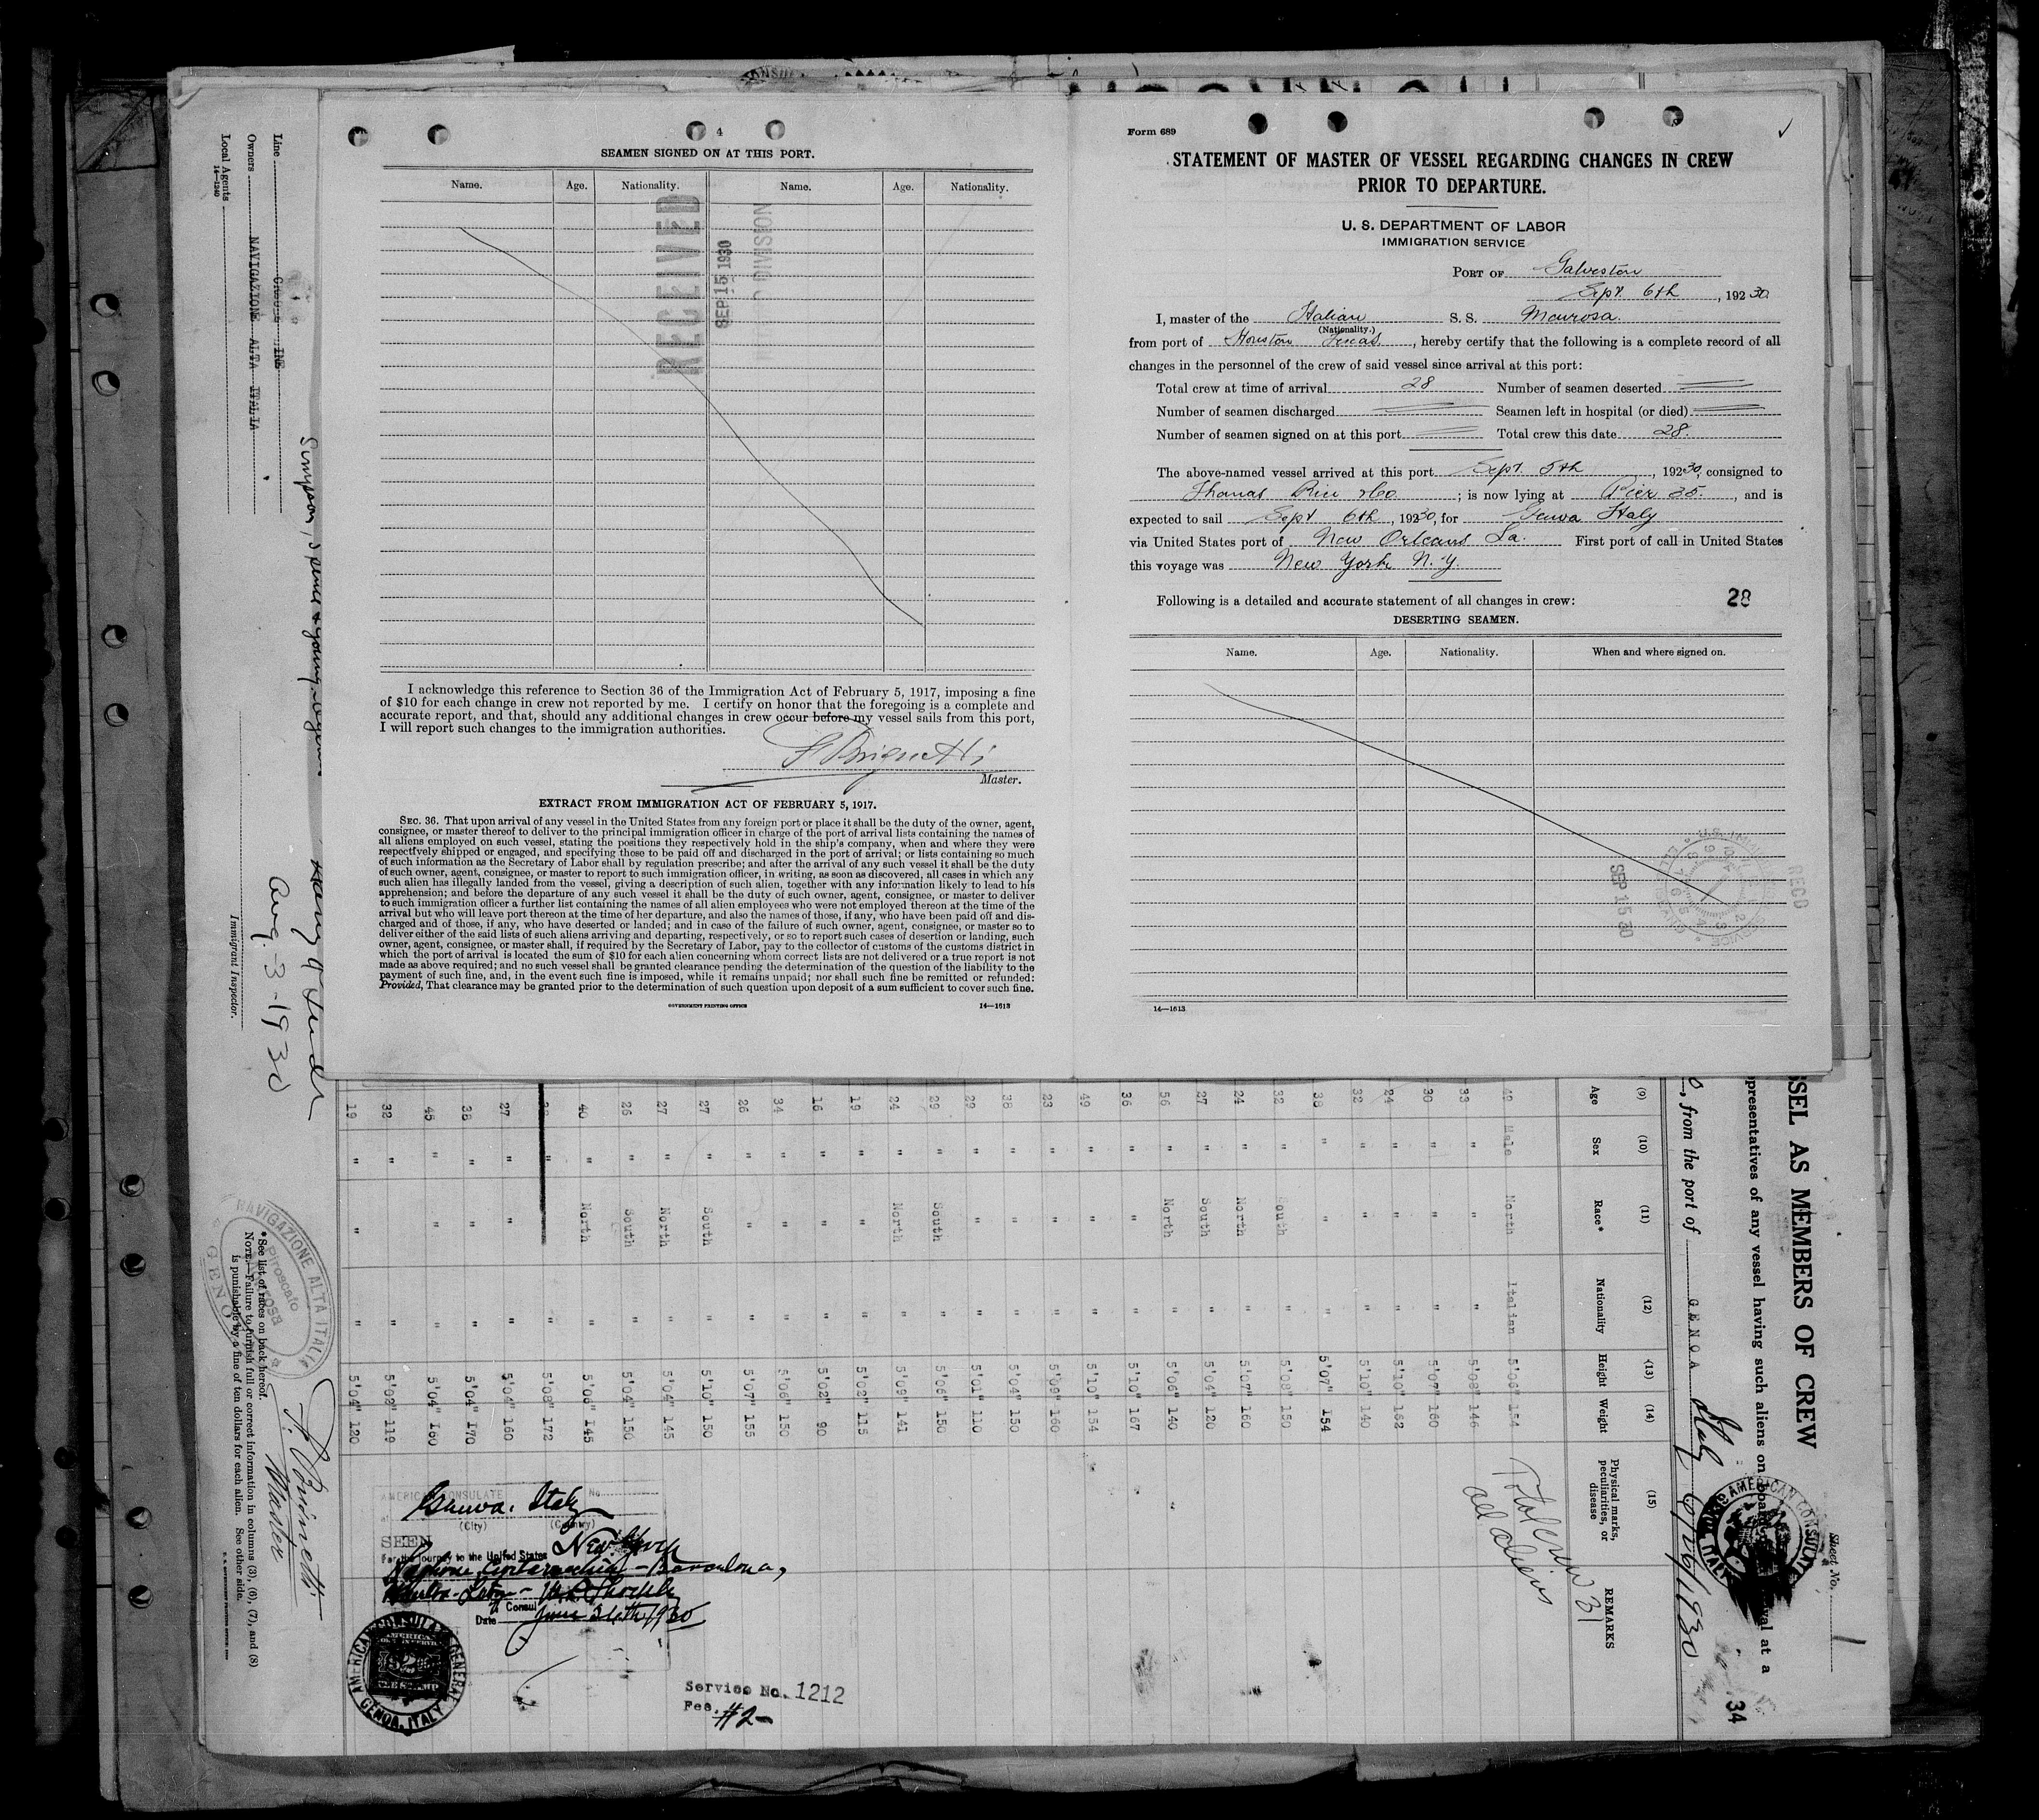 4
SEAMEN SIGNED ON AT THIS PORT.
Name. Age. Nationality. Name. Age. Nationality.
RECEIVED
SEP 15 1930
DIVISION
I acknowledge this reference to Section 36 of the Immigration Act of February 5, 1917, imposing a fine
of $10 for each change in crew not reported by me. I certify on honor that the foregoing is a complete and
accurate report, and that, should any additional changes in crew occur before my vessel sails from this port,
I will report such changes to the immigration authorities.
Master.
EXTRACT FROM IMMIGRATION ACT OF FEBRUARY 5, 1917.
SEC. 36. That upon arrival of any vessel in the United States from any foreign port or place it shall be the duty of the owner, agent,
consignee, or master thereof to deliver to the principal immigration officer in charge of the port of arrival lists containing the names of
all aliens employed on such vessel, stating the positions they respectively hold in the ship's company, when and where they were
respectively shipped or engaged, and specifying those to be paid off and discharged in the port of arrival; or lists containing so much
of such information as the Secretary of Labor shall by regulation prescribe; and after the arrival of any such vessel it shall be the duty
of such owner, agent, consignee, or master to report to such immigration officer, in writing, as soon as discovered, all cases in which any
such alien has illegally landed from the vessel, giving a description of such alien, together with any information likely to lead to his
apprehension; and before the departure of any such vessel it shall be the duty of such owner, agent, consignee, or master to deliver
to such immigration officer a further list containing the names of all alien employees who were not employed thereon at the time of the
arrival but who will leave port thereon at the time of her departure, and also the names of those, if any, who have been paid off and dis-
charged and of those, if any, who have deserted or landed; and in case of the failure of such owner, agent, consignee, or master so to
deliver either of the said lists of such aliens arriving and departing, respectively, or so to report such cases of desertion or landing, such
owner, agent, consignee, or master shall, if required by the Secretary of Labor, pay to the collector of customs of the customs district in
which the port of arrival is located the sum of $10 for each alien concerning whom correct lists are not delivered or a true report is not
made as above required; and no such vessel shall be granted clearance pending the determination of the question of the liability to the
payment of such fine, and, in the event such fine is imposed, while it remains unpaid; nor shall such fine be remitted or refunded:
Provided, That clearance may be granted prior to the determination of such question upon deposit of a sum sufficient to cover such fine.
GOVERNMENT PRINTING OFFICE 14—1613
Form 689
STATEMENT OF MASTER OF VESSEL REGARDING CHANGES IN CREW
PRIOR TO DEPARTURE.
U. S. DEPARTMENT OF LABOR
IMMIGRATION SERVICE
PORT OF Galveston
Sept. 6th, 1930
I, master of the Italian S. S. Monrosa.
(Nationality.)
from port of Houston Texas, hereby certify that the following is a complete record of all
changes in the personnel of the crew of said vessel since arrival at this port:
Total crew at time of arrival 28 Number of seamen deserted
Number of seamen discharged Seamen left in hospital (or died)
Number of seamen signed on at this port Total crew this date 28.
The above-named vessel arrived at this port Sept. 5th, 1930, consigned to
Thomas Rice & Co.; is now lying at Pier 35., and is
expected to sail Sept 6th, 1930, for Genoa Italy
via United States port of New Orleans La. First port of call in United States
this voyage was New York N.Y.
Following is a detailed and accurate statement of all changes in crew: 28
DESERTING SEAMEN.
Name. Age. Nationality. When and where signed on.
SEP 15 30
REC'D
14—1613
Line
Owners NAVIGAZIONE ALTA ITALIA
Local Agents
14—1240
Aug. 3-1930
Immigrant Inspector.
SSEL AS MEMBERS OF CREW
presentatives of any vessel having such aliens on board
val at a
from the port of GENOA Italy
Sheet No. 1
34
(9) (10) (11) (12) (13) (14) (15)
Age Sex Race* Nationality Height Weight Physical marks, peculiarities, or disease REMARKS
Total crew 31
all aliens
49 Male North Italian 5'06" 154
33 " " " 5'08" 146
30 " " " 5'07" 160
24 " " " 5'10" 162
32 " " " 5'10" 140
38 " " " 5'07" 154
32 " South " 5'08" 150
24 " North " 5'07" 160
27 " South " 5'04" 120
56 " North " 5'06" 140
36 " " " 5'10" 167
49 " " " 5'10" 154
23 " " " 5'09" 160
38 " " " 5'04" 150
29 " " " 5'01" 110
29 " South " 5'06" 150
24 " North " 5'09" 141
19 " " " 5'02" 115
16 " " " 5'02" 90
34 " " " 5'06" 150
26 " " " 5'07" 155
27 " South " 5'10" 150
27 " North " 5'04" 145
26 " South " 5'04" 150
40 " North " 5'06" 145
" " 5'08" 172
27 " " " 5'04" 160
38 " " " 5'04" 170
45 " " " 5'04" 160
32 " " 5'02" 119
19 " " " 5'04" 120
NAVIGAZIONE ALTA ITALIA
Piroscafo
GENO
*See list of races on back hereof.
NOTE.—Failure to furnish full or correct information in columns (3), (6), (7), and (8)
is punishable by a fine of ten dollars for each alien. See other side.
Master
AMERICAN CONSULATE No.
Genova. Italy
(City) (Country)
SEEN
For the journey to the United States New York
Barcelona,
Consul
Date June 26th 1930
AMERICAN CONSULATE GENERAL
GENOA, ITALY
Service No. 1212
Fee. #2-